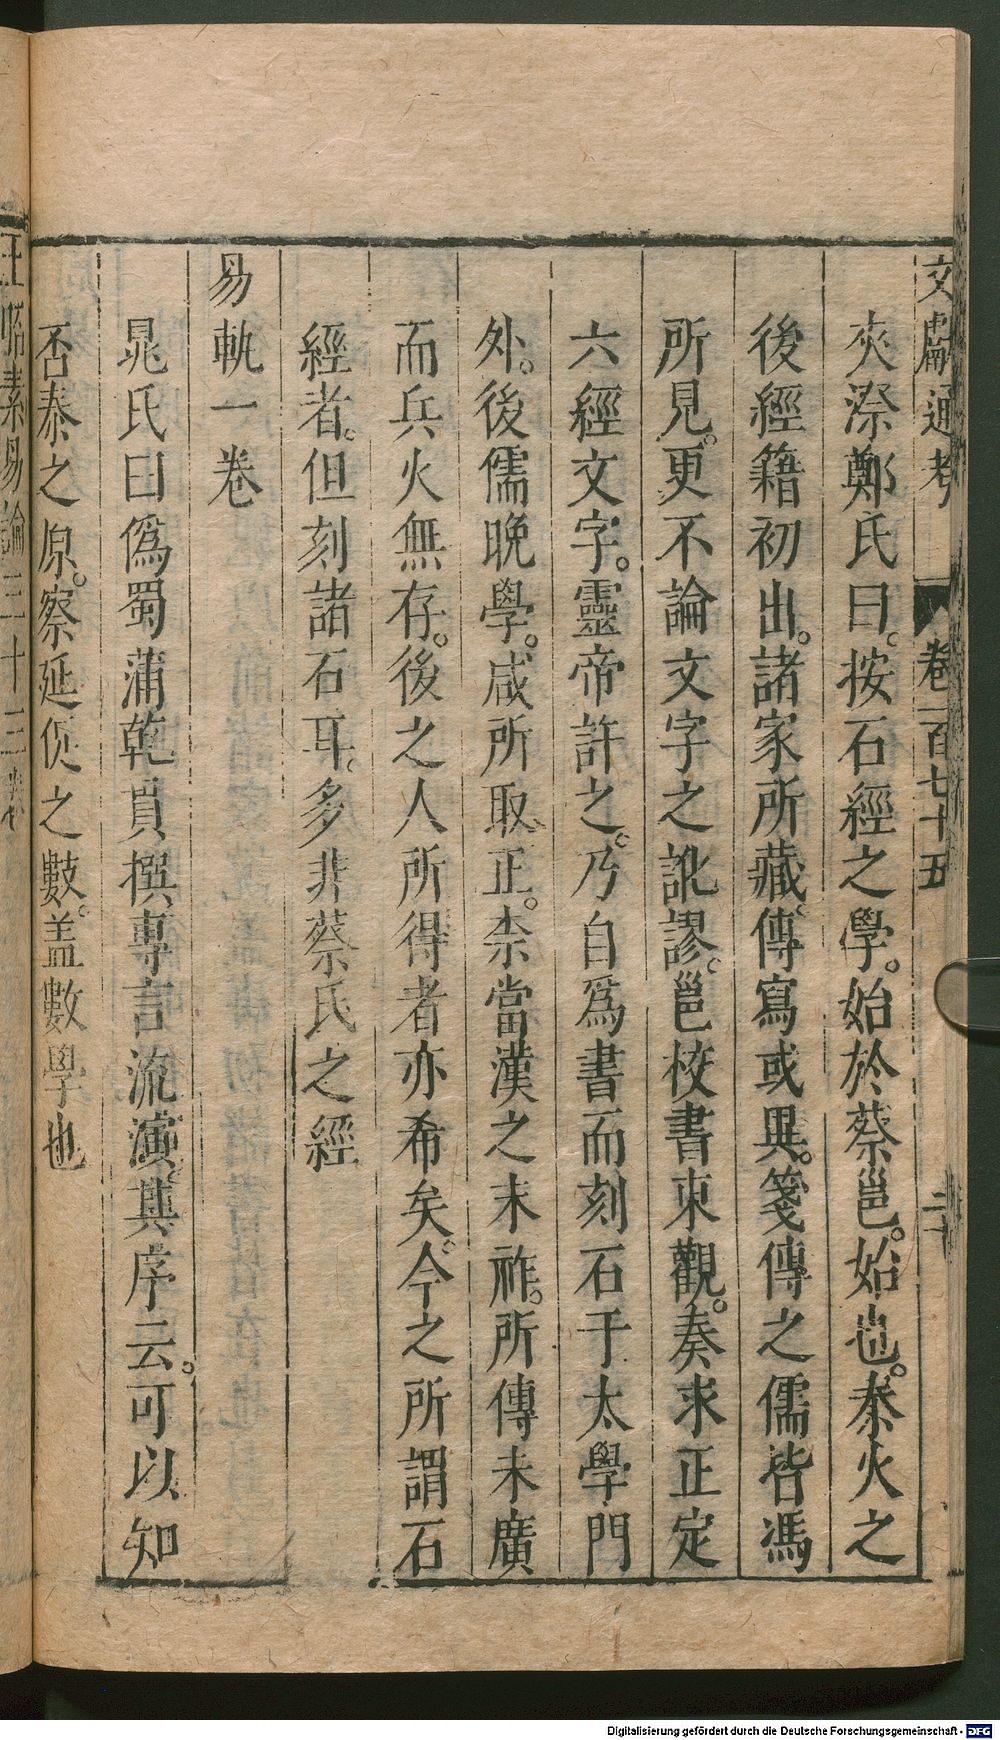 文獻通考 卷一百七十五 二十
夾漈鄭氏曰。按石經之學。始於蔡邕。始也。秦火之
後經籍初出。諸家所藏。傳寫或異。箋傳之儒皆馮
所見。更不論文字之訛謬。邕校書東觀。奏求正定
六經文字。靈帝許之。乃自爲書而刻石于太學門
外。後儒晚學。咸所取正。柰當漢之末祚。所傳未廣
而兵火無存。後之人所得者亦希矣。今之所謂石
經者。但刻諸石耳。多非蔡氏之經
易軌一卷
晁氏曰偽蜀蒲乾貫撰專言流演其序云。可以知
否泰之原。察延促之數。蓋數學也
王昭素易論三十三卷
Digitalisierung gefördert durch die Deutsche Forschungsgemeinschaft - DFG